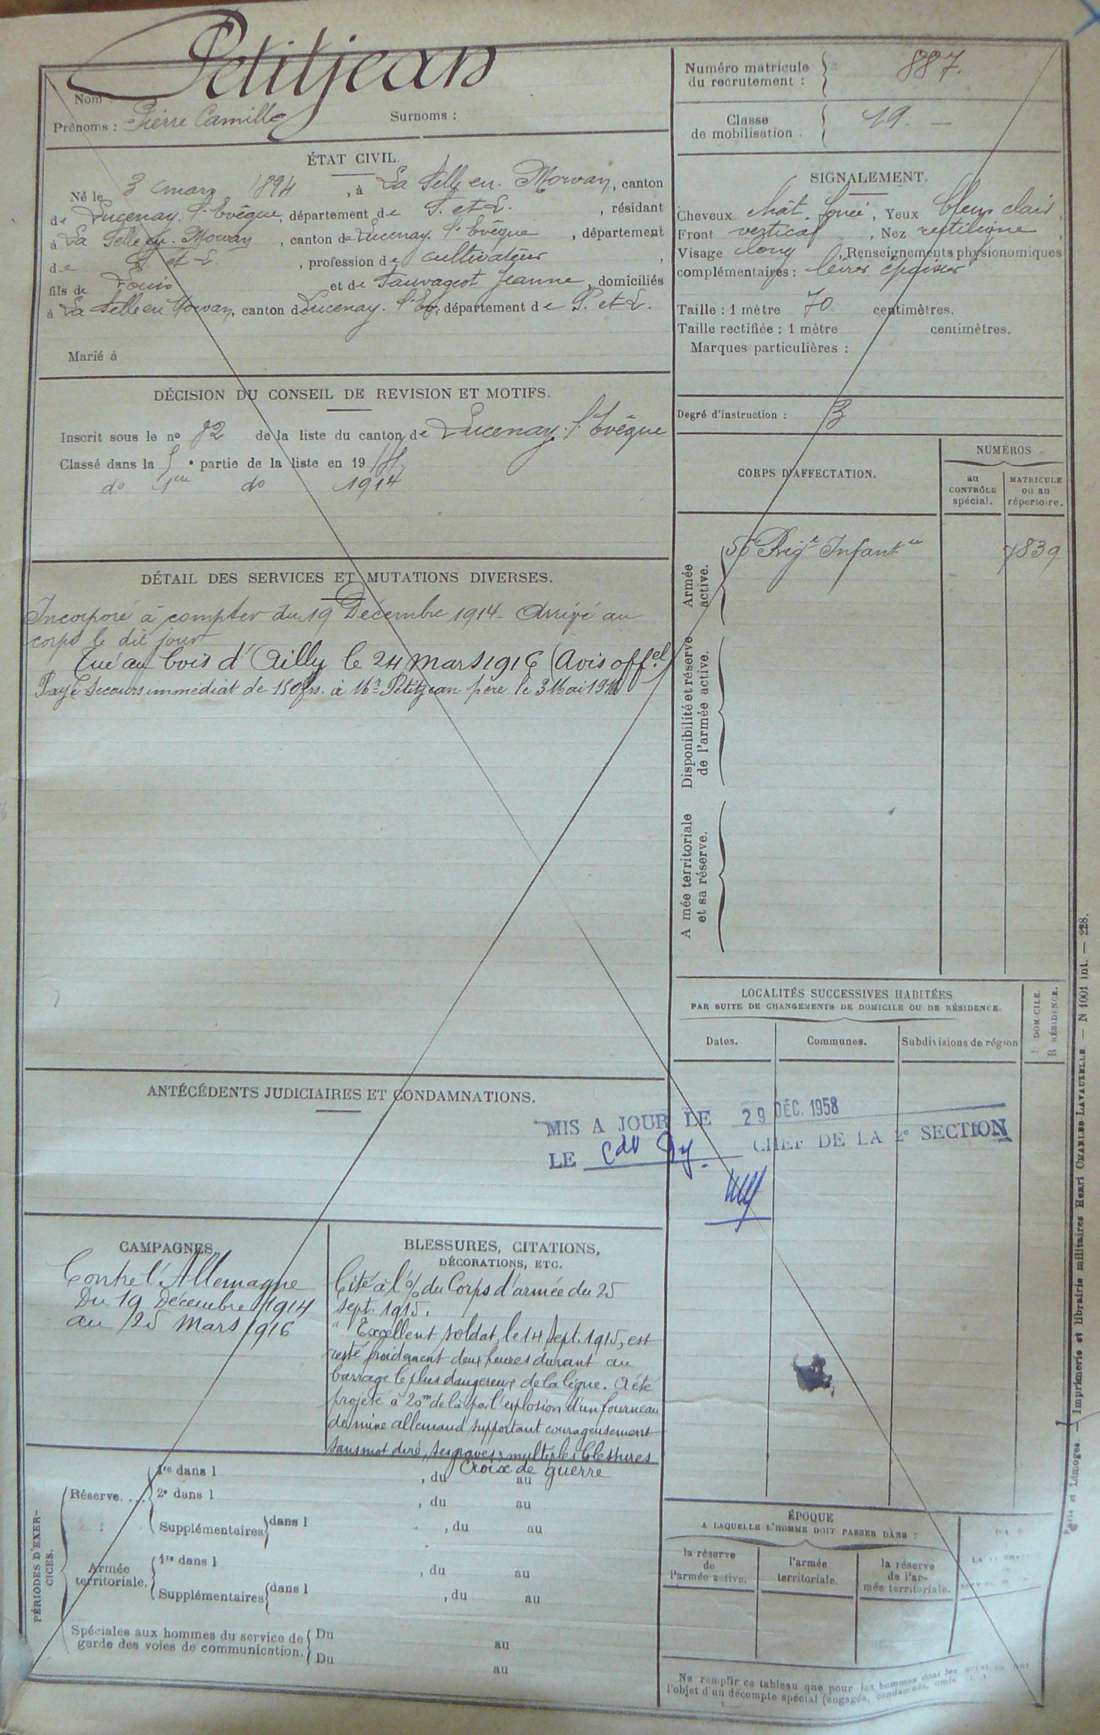 Petitjean
Nom
Prénoms : Pierre Camille Surnoms :
ÉTAT CIVIL.
Né le 3 mars 1894, à La Selle en Morvan, canton
de Lucenay l'Evêque, département de S. et L., résidant
à La Selle en Morvan, canton de Lucenay l'Evêque, département
de S. et L., profession de cultivateur,
fils de Louis et de Sauvageot Jeanne, domiciliés
à La Selle en Morvan, canton de Lucenay l'Ev., département de S. et L.
Marié à
DÉCISION DU CONSEIL DE REVISION ET MOTIFS.
Inscrit sous le no 82 de la liste du canton de Lucenay l'Evêque
Classé dans la 5e partie de la liste en 19
do 1ère do 1914
DÉTAIL DES SERVICES ET MUTATIONS DIVERSES.
Incorporé à compter du 19 Décembre 1914. Arrivé au
corps le dit jour
Tué au bois d'Ailly le 24 mars 1916 (Avis offel)
Payé secours immédiat de 150frs. à Mr Petitjean père le 3 Mai 1916
ANTÉCÉDENTS JUDICIAIRES ET CONDAMNATIONS.
CAMPAGNES.
Contre l'Allemagne
Du 19 Décembre 1914
au 25 mars 1916
BLESSURES, CITATIONS,
DÉCORATIONS, ETC.
Cité à l'o/ du Corps d'armée du 25
sept. 1915.
" Excellent soldat, le 14 sept. 1915, est
resté froidement deux heures durant au
barrage le plus dangereux de la ligne. A été
projeté à 20m de là par l'explosion d'un fourneau
de mine allemand, supportant courageusement
sans mot dire, ses graves & multiples blessures
Croix de guerre
PÉRIODES D'EXERCICES.
Réserve....
1re dans l , du au
2e dans l , du au
Supplémentaires dans l , du au
Armée territoriale.
1re dans l , du au
Supplémentaires dans l , du au
Spéciales aux hommes du service de Du au
garde des voies de communication. Du au
Numéro matricule
du recrutement : 887.
Classe
de mobilisation : 19
SIGNALEMENT.
Cheveux chât. foncé, Yeux bleus clair,
Front vertical, Nez rectiligne,
Visage long, Renseignements physionomiques
complémentaires : lèvres épaisses
Taille : 1 mètre 70 centimètres.
Taille rectifiée : 1 mètre centimètres.
Marques particulières :
Degré d'instruction : 3
CORPS D'AFFECTATION.
NUMÉROS
au
CONTRÔLE
spécial.
MATRICULE
ou au
répertoire.
Armée
active.
56e Régt Infantie 7839
Disponibilité et réserve
de l'armée active.
A mée territoriale
et sa réserve.
LOCALITÉS SUCCESSIVES HABITÉES
PAR SUITE DE CHANGEMENTS DE DOMICILE OU DE RÉSIDENCE.
Dates. Communes. Subdivisions de région
DOMICILE.
R RÉSIDENCE.
MIS A JOUR LE 29 DÉC. 1958
LE CHEF DE LA 2e SECTION
ÉPOQUE
A LAQUELLE L'HOMME DOIT PASSER DANS :
la réserve
de
l'armée active.
l'armée
territoriale.
la réserve
de l'ar-
mée territoriale.
Ne remplir ce tableau que pour les hommes dont les
l'objet d'un décompte spécial (engagés, condamnés, omis
Paris et Limoges. — Imprimerie et librairie militaires Henri CHARLES-LAVAUZELLE. — N 1001 int. — 228.